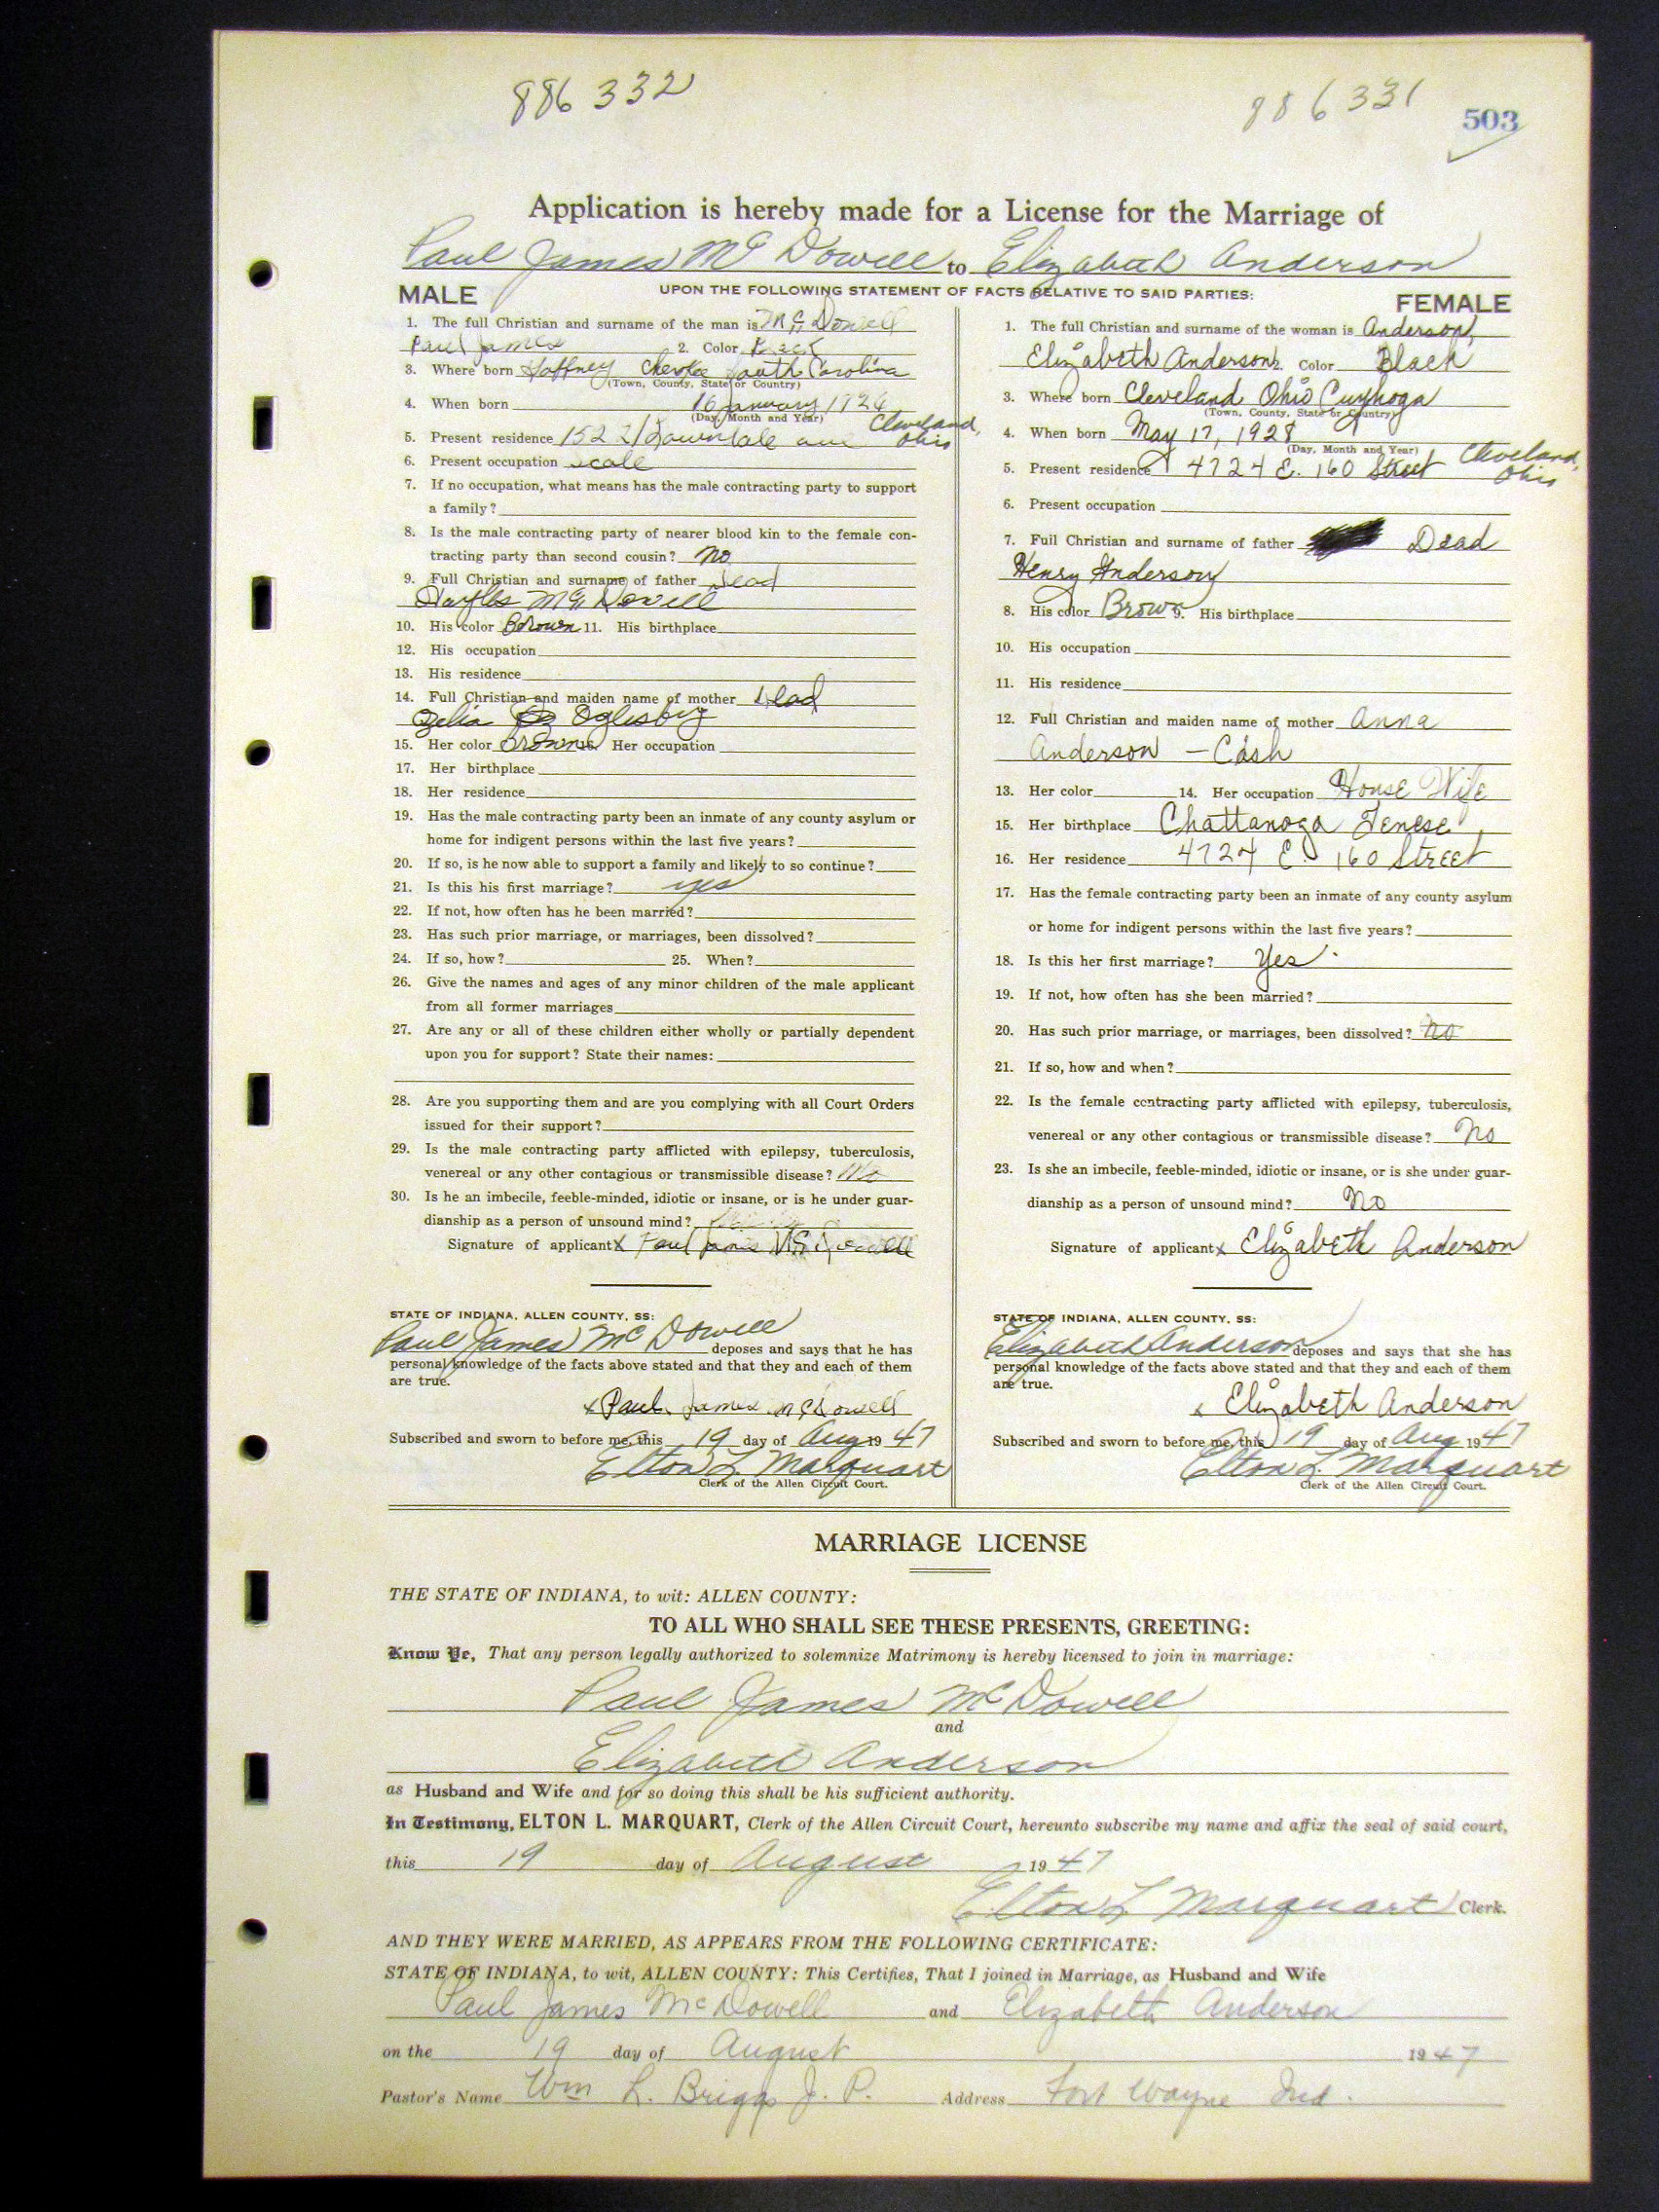 886 332
886 331
503
Application is hereby made for a License for the Marriage of
Paul James McDowell to Elizabeth Anderson
UPON THE FOLLOWING STATEMENT OF FACTS RELATIVE TO SAID PARTIES:
MALE
1. The full Christian and surname of the man is McDowell
Paul James 2. Color Black
3. Where born Gaffney Cherokee South Carolina
(Town, County, State or Country)
4. When born 16 January 1926
(Day, Month and Year)
5. Present residence 15221 Cleveland, Ohio
6. Present occupation Scale
7. If no occupation, what means has the male contracting party to support
a family?
8. Is the male contracting party of nearer blood kin to the female con-
tracting party than second cousin? No
9. Full Christian and surname of father Dead
McDowell
10. His color Brown 11. His birthplace
12. His occupation
13. His residence
14. Full Christian and maiden name of mother Dead
Zelia Oglesby
15. Her color Brown 16. Her occupation
17. Her birthplace
18. Her residence
19. Has the male contracting party been an inmate of any county asylum or
home for indigent persons within the last five years?
20. If so, is he now able to support a family and likely to so continue?
21. Is this his first marriage? yes
22. If not, how often has he been married?
23. Has such prior marriage, or marriages, been dissolved?
24. If so, how? 25. When?
26. Give the names and ages of any minor children of the male applicant
from all former marriages
27. Are any or all of these children either wholly or partially dependent
upon you for support? State their names:
28. Are you supporting them and are you complying with all Court Orders
issued for their support?
29. Is the male contracting party afflicted with epilepsy, tuberculosis,
venereal or any other contagious or transmissible disease? No
30. Is he an imbecile, feeble-minded, idiotic or insane, or is he under guar-
dianship as a person of unsound mind?
Signature of applicant x Paul James McDowell
STATE OF INDIANA, ALLEN COUNTY, SS:
Paul James McDowell deposes and says that he has
personal knowledge of the facts above stated and that they and each of them
are true.
x Paul James McDowell
Subscribed and sworn to before me, this 19 day of Aug 1947
Elton L Marquart
Clerk of the Allen Circuit Court.
FEMALE
1. The full Christian and surname of the woman is Anderson,
Elizabeth Anderson 2. Color Black
3. Where born Cleveland Ohio Cuyhoga
(Town, County, State or Country)
4. When born May 17, 1928
(Day, Month and Year)
5. Present residence 4724 E. 160 Street Cleveland, Ohio
6. Present occupation
7. Full Christian and surname of father Dead
Henry Anderson
8. His color Brown 9. His birthplace
10. His occupation
11. His residence
12. Full Christian and maiden name of mother Anna
Anderson - Cash
13. Her color 14. Her occupation House Wife
15. Her birthplace Chattanoga Tenese
16. Her residence 4724 E. 160 Street
17. Has the female contracting party been an inmate of any county asylum
or home for indigent persons within the last five years?
18. Is this her first marriage? Yes
19. If not, how often has she been married?
20. Has such prior marriage, or marriages, been dissolved? no
21. If so, how and when?
22. Is the female contracting party afflicted with epilepsy, tuberculosis,
venereal or any other contagious or transmissible disease? No
23. Is she an imbecile, feeble-minded, idiotic or insane, or is she under guar-
dianship as a person of unsound mind? No
Signature of applicant x Elizabeth Anderson
STATE OF INDIANA, ALLEN COUNTY, SS:
Elizabeth Anderson deposes and says that she has
personal knowledge of the facts above stated and that they and each of them
are true.
x Elizabeth Anderson
Subscribed and sworn to before me, this 19 day of Aug 1947
Elton L. Marquart
Clerk of the Allen Circuit Court.
MARRIAGE LICENSE
THE STATE OF INDIANA, to wit: ALLEN COUNTY:
TO ALL WHO SHALL SEE THESE PRESENTS, GREETING:
Know Ye, That any person legally authorized to solemnize Matrimony is hereby licensed to join in marriage:
Paul James McDowell
and
Elizabeth Anderson
as Husband and Wife and for so doing this shall be his sufficient authority.
In Testimony, ELTON L. MARQUART, Clerk of the Allen Circuit Court, hereunto subscribe my name and affix the seal of said court,
this 19 day of August 1947
Elton L Marquart Clerk.
AND THEY WERE MARRIED, AS APPEARS FROM THE FOLLOWING CERTIFICATE:
STATE OF INDIANA, to wit, ALLEN COUNTY: This Certifies, That I joined in Marriage, as Husband and Wife
Paul James McDowell and Elizabeth Anderson
on the 19 day of August 1947
Pastor's Name Wm L. Briggs J. P. Address Fort Wayne Ind.